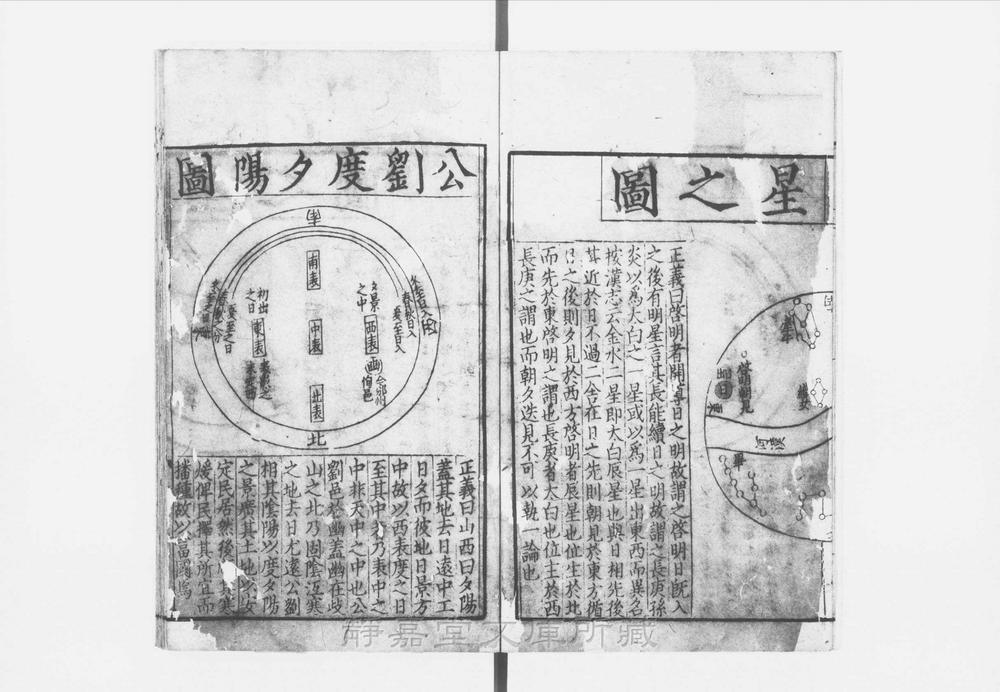 星之圖
正義曰啓明者開導日之明故謂之啓明日旣入
之後有明星言其長能續日之明故謂之長庚孫
炎以爲大白之一星或以爲一星出東西而異名
按漢志云金水二星即大白辰星也與日相先後
其近於日不過二舍在日之先則朝見於東方循
日之後則夕見於西方啓明者辰星也位生於北
而先於東啓明之謂也長庚者大白也位主於西
長庚之謂也而朝夕迭見不可以執一論也
啓明朝見
出日
織女
畢
公劉度夕陽圖
南表
中表
北表
北
冬至日入
春秋日入
夏至日入
西表
夕景
之中
豳
東表
初出
之日
夏至之日
正義曰山西曰夕陽
蓋其地去日遠中工
日夕而彼地日景方
中故以西表度之日
至其中乃表中之
中非天中之中也公
劉邑於豳蓋豳在岐
山之北乃固陰沍寒
之地去日尤遠公劉
相其陰陽以度夕陽
之景廣其土地以安
定民居然後其寒
煖俾民擇其所宜而
播種故以富國焉
靜嘉堂文庫所藏